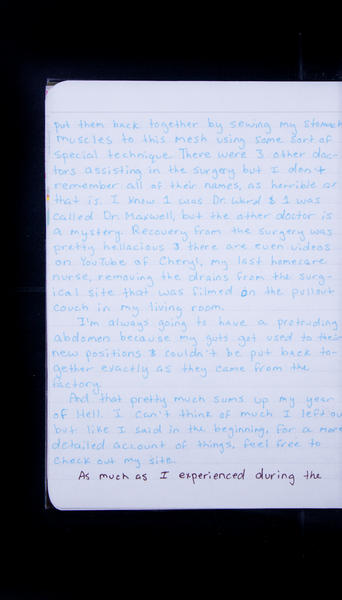 put them back together by sewing my stomach
muscles to this mesh using some sort of
special technique. There were 3 other doc-
tors assisting in the surgery but I don't
remember all of their names, as horrible as
that is. I know 1 was Dr. Ward & 1 was
called Dr. Maxwell, but the other doctor is
a mystery. Recovery from the surgery was
pretty hellacious & there are even videos
on YouTube of Cheryl, my last homecare
nurse, removing the drains from the surg-
ical site that was filmed on the pullout
couch in my living room.
I'm always going to have a protruding
abdomen because my guts got used to their
new positions & couldn't be put back to-
gether exactly as they came from the
factory.
And that pretty much sums up my year
of Hell. I can't think of much I left ou
but like I said in the beginning, for a more
detailed account of things, feel free to
check out my site.
As much as I experienced during the